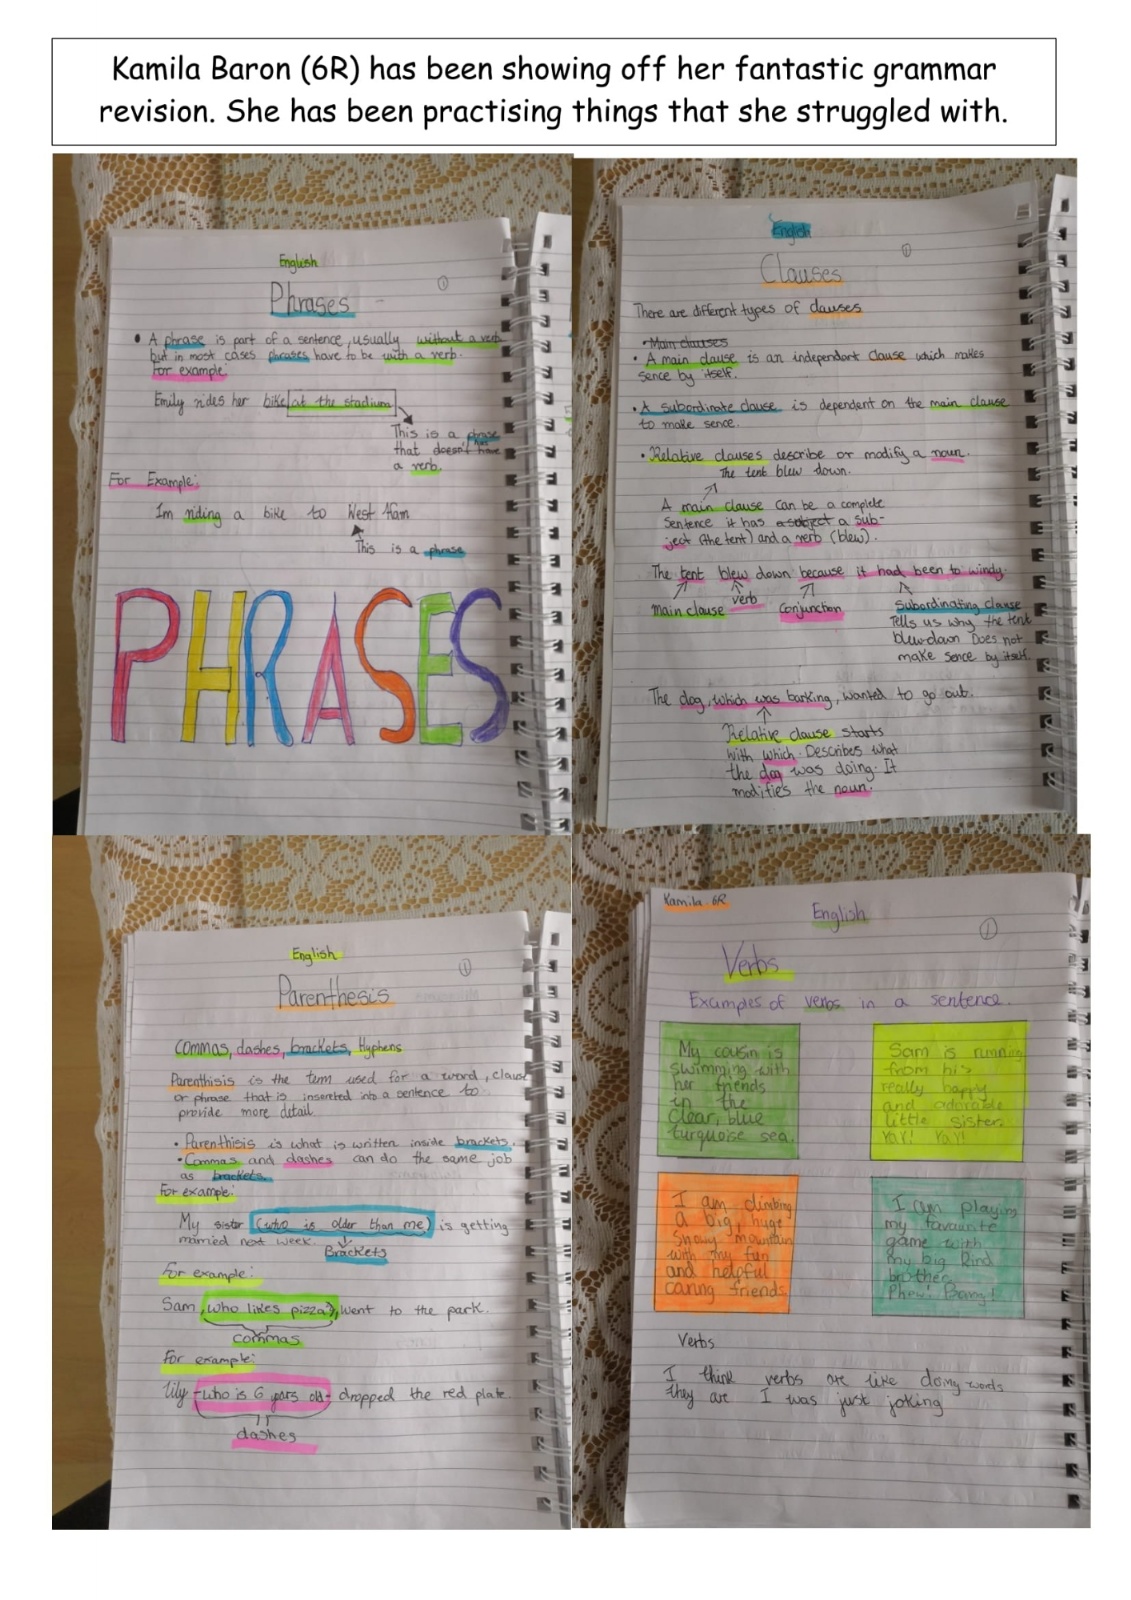 Kamila Baron (6R) has been showing off her fantastic grammar
revision. She has been practising things that she struggled with.
English
1
Phrases
• A phrase is part of a sentence, usually without a verb
but in most cases phrases have to be with a verb.
For example:
Emily rides her bike at the stadium
This is a phrase
that doesn't have
a verb.
For Example:
Im riding a bike to West Ham
This is a phrase
PHRASES
English
1
Clauses
There are different types of clauses
• Main clauses
• A main clause is an independant clause which makes
sence by itself.
• A subordinate clause is dependent on the main clause
to make sence.
• Relative clauses describe or modify a noun.
The tent blew down.
A main clause can be a complete
sentence it has a subject a sub-
ject (the tent) and a verb (blew).
The tent blew down because it had been to windy.
Main clause verb Conjunction Subordinating clause
Tells us why the tent
blew down Does not
make sence by itself.
The dog, which was barking, wanted to go out.
Relative clause starts
with which. Describes what
the dog was doing. It
modifies the noun.
English
1
Parenthesis
commas, dashes, brackets, Hyphens
Parenthisis is the term used for a word, clause
or phrase that is insereted into a sentence to
provide more detail
• Parenthisis is what is written inside brackets.
• Commas and dashes can do the same job
as brackets.
For example:
My sister (who is older than me) is getting
married next week.
Brackets
For example:
Sam, who likes pizza, went to the park.
commas
For example:
Lily -who is 6 years old- dropped the red plate.
dashes
Kamila 6R
English
1
Verbs
Examples of verbs in a sentence.
My cousin is
swimming with
her friends
in the
clear, blue
turquoise sea.
Sam is running
from his
really happy
and adorable
little sister.
YAY! YAY!
I am climbing
a big, huge
snowy mountain
with my fun
and helpful
caring friends
I am playing
my favourite
game with
my big kind
brother
Phew! Bang!
Verbs
I think verbs are like doing words
they are I was just joking